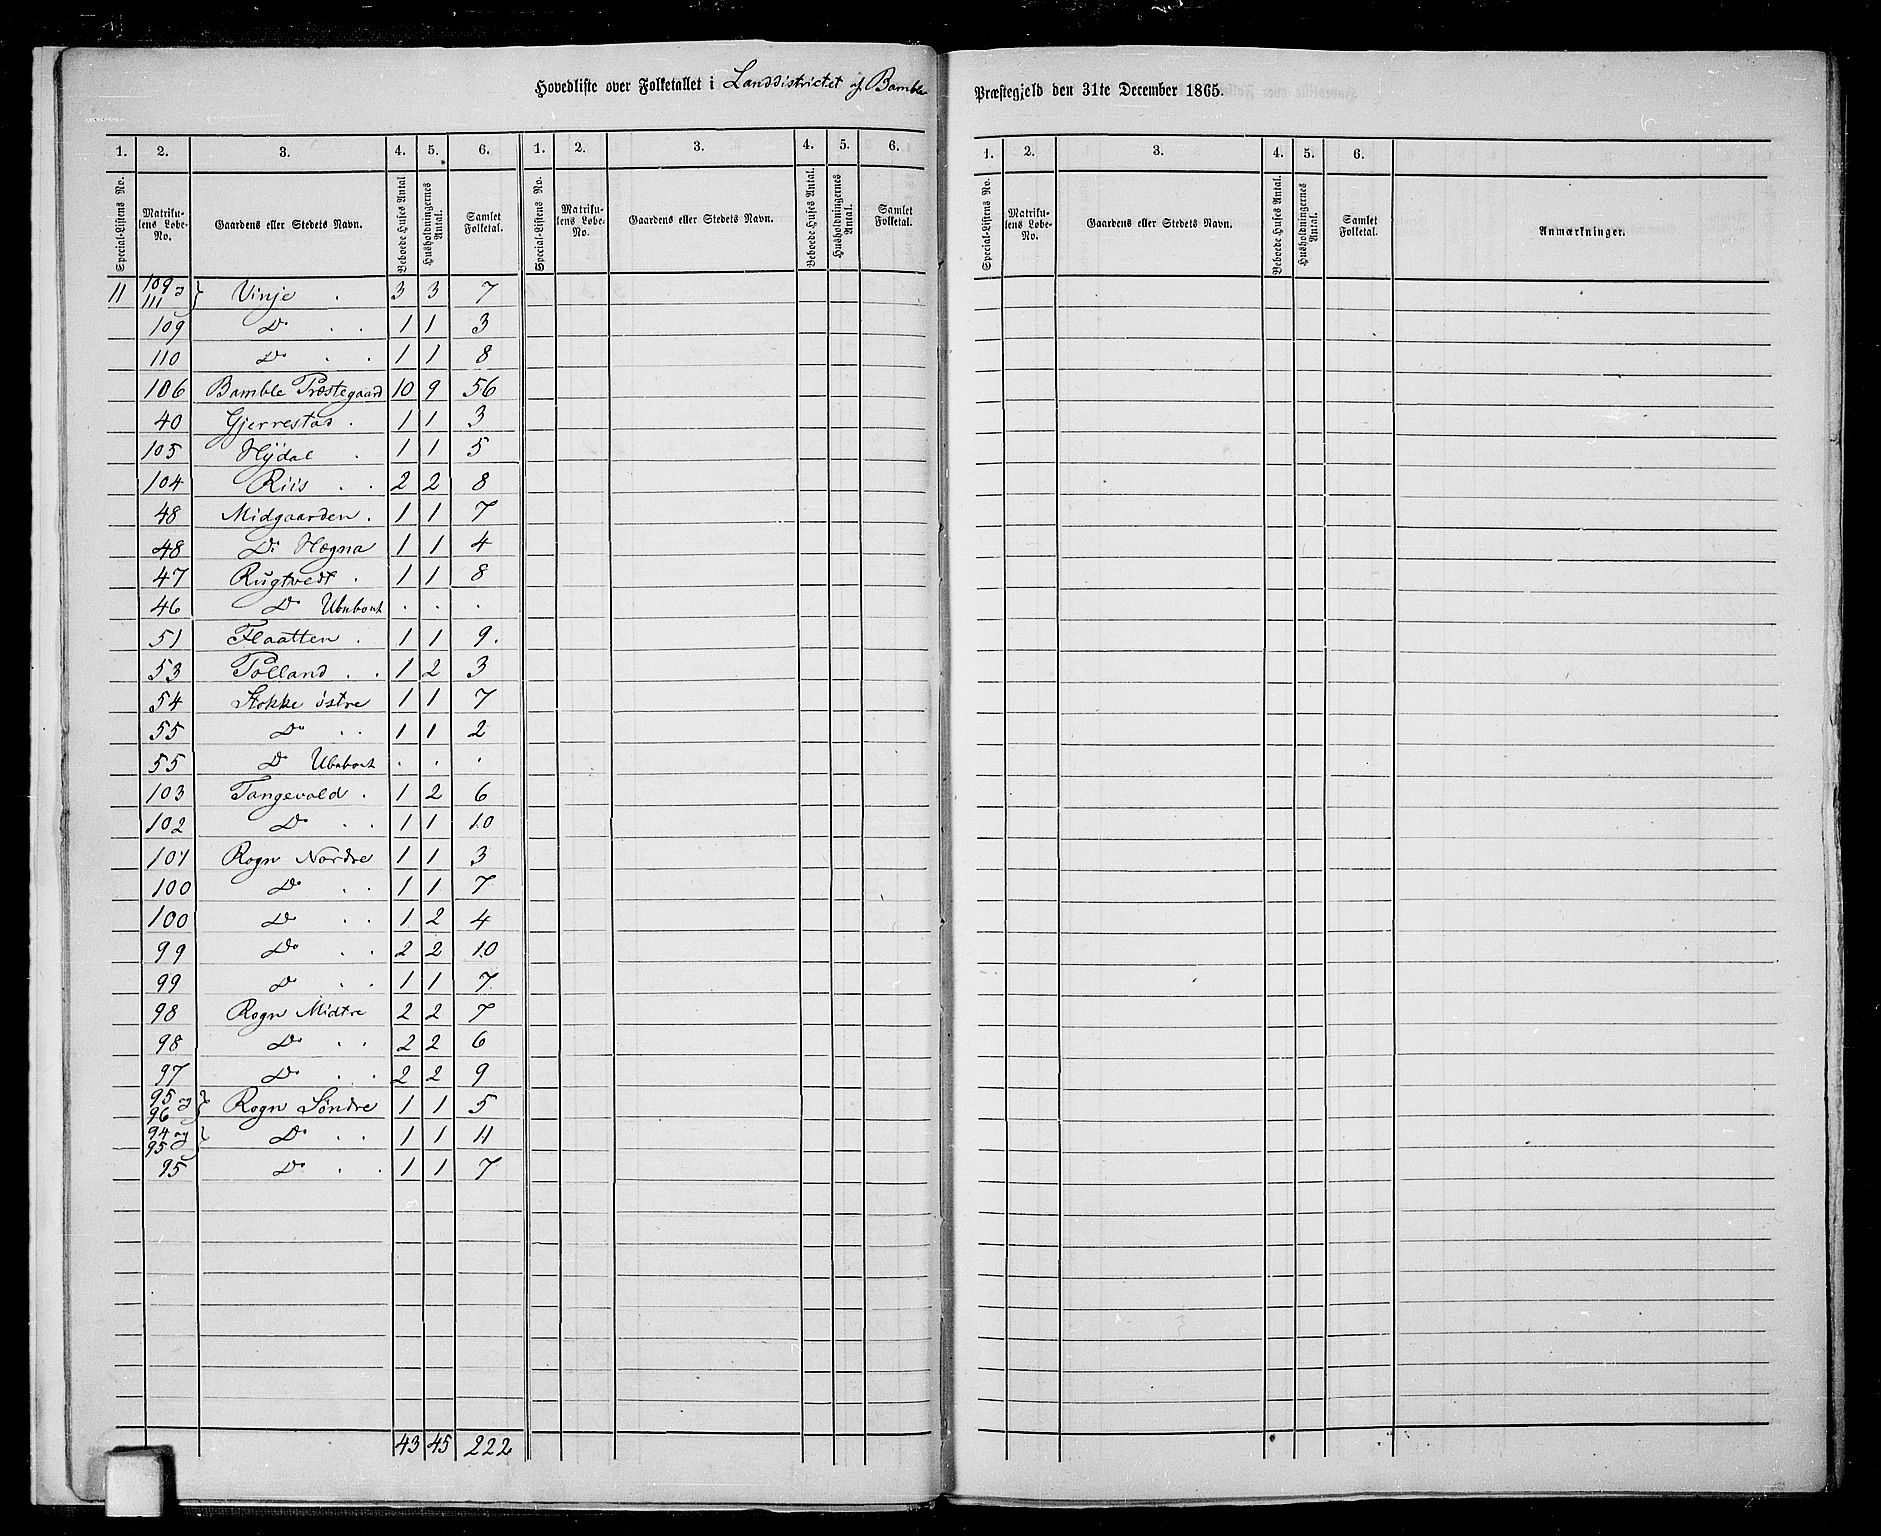 Hovedliste over Folketallet i Landdistrictet af Bamble Præstegjeld den 31te December 1865.
1. 2. 3. 4. 5. 6. 1. 2. 3. 4. 5. 6. 1. 2. 3. 4. 5. 6.
Special-Listens No. Matrikulens Løbe-No. Gaardens eller Stedets Navn. Beboede Huses Antal Husholdningernes Antal. Samlet Folketal. Special-Listens No. Matrikulens Løbe-No. Gaardens eller Stedets Navn. Beboede Huses Antal. Husholdningernes Antal. Samlet Folketal. Special-Listens No. Matrikulens Løbe-No. Gaardens eller Stedets Navn. Beboede Huses Antal. Husholdningernes Antal. Samlet Folketal. Anmærkninger.
11 109 og 111 } Vinje . 3 3 7
109 Do . . 1 1 3
110 Do . . 1 1 8
106 Bamble Præstegaard 10 9 56
40 Gjerrestad . 1 1 3
105 Hydal . 1 1 5
104 Riis . . 2 2 8
48 Midgaarden . 1 1 7
48 Do Hegna 1 1 4
47 Rugtvedt . 1 1 8
46 Do Ubeboet . . .
51 Flaatten . 1 1 9.
53 Polland . . 1 2 3
54 Stokke østre 1 1 7
55 Do . . 1 1 2
55 Do Ubeboet . . .
103 Tangevald . 1 2 6
102 Do . . 1 1 10
101 Rogn Nordre 1 1 3
100 Do . . 1 1 7
100 Do . . 1 2 4
99 Do . . 2 2 10
99 Do . . 1 1 7
98 Rogn Midtre 2 2 7
98 Do . . 2 2 6
97 Do . . 2 2 9
95 og 96 } Rogn Søndre 1 1 5
94 og 95 } Do . . 1 1 11
95 Do . . 1 1 7
43 45 222